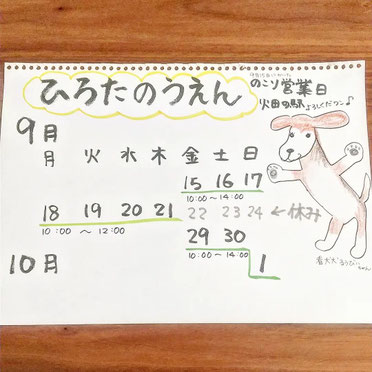 ひろたのうえん
のこり営業日
火田の馬尺 よろしくだワン♪
9月
月 火 水 木 金 土 日
15 16 17
10:00 ~ 14:00
18 19 20 21 22 23 24 ← 休み
10:00 ~ 12:00
29 30
10:00 ~ 14:00
10月
1
看犬犬